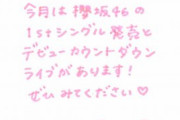 今月は 櫻坂46の
1stシングル発売と
デビューカウントダウン
ライブがあります!
ぜひみてください♡